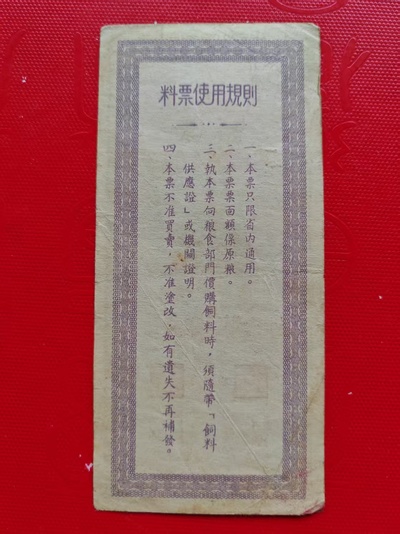 料票使用規則
一、本票只限省内通用。
二、本票票面額係原粮。
三、執本票向粮食部門價購飼料時，須隨帶「飼料
供應證」或機關證明。
四、本票不准買賣，不准塗改，如有遺失不再補發。